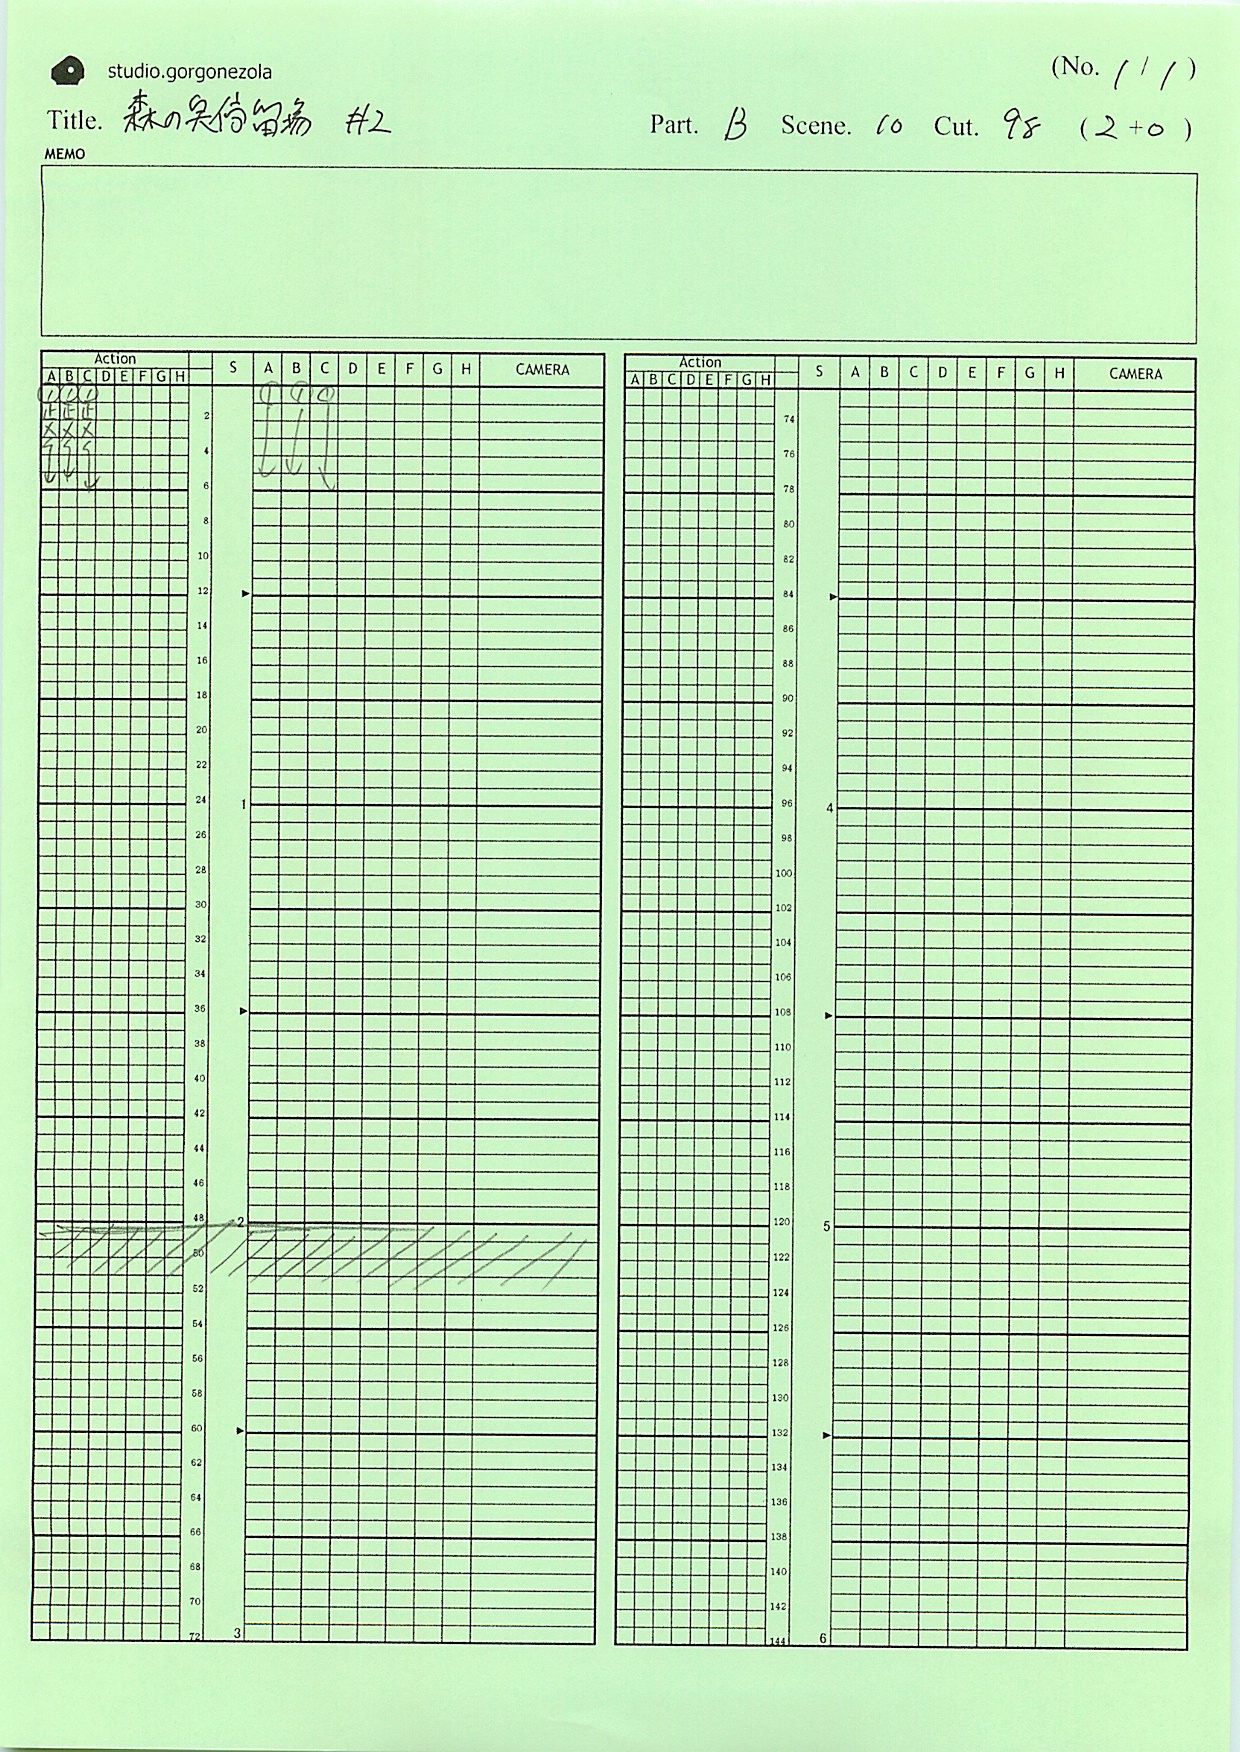 studio.gorgonezola
(No. 1 / 1 )
Title. 森の 留場 #2
Part. B Scene. 10 Cut. 98 ( 2 + 0 )
MEMO
Action S A B C D E F G H CAMERA
A B C D E F G H
① ① ① ① ① ①
止 止 止
× × ×
2
4
6
8
10
12
14
16
18
20
22
24 1
26
28
30
32
34
36
38
40
42
44
46
48 2
50
52
54
56
58
60
62
64
66
68
70
72 3
Action S A B C D E F G H CAMERA
A B C D E F G H
74
76
78
80
82
84
86
88
90
92
94
96 4
98
100
102
104
106
108
110
112
114
116
118
120 5
122
124
126
128
130
132
134
136
138
140
142
144 6